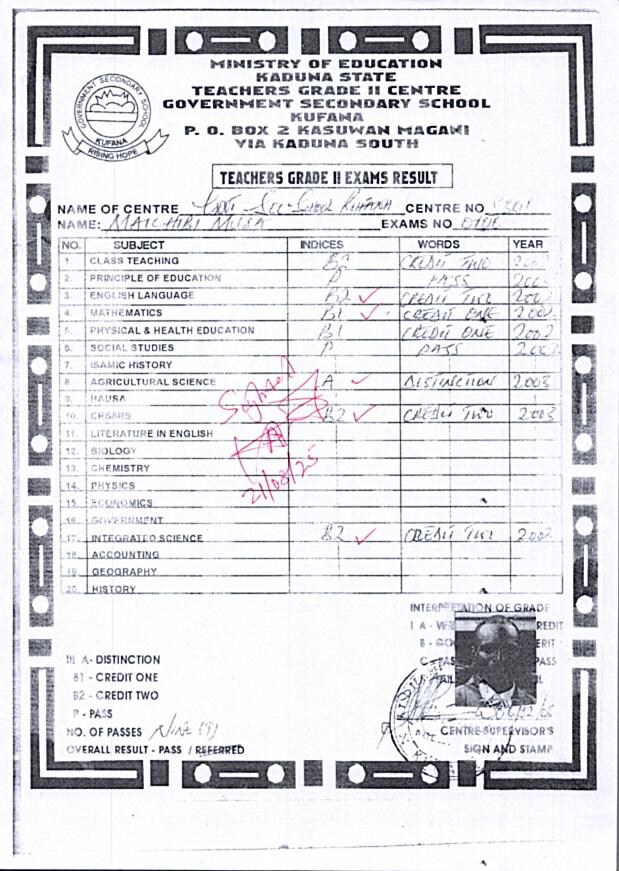 MINISTRY OF EDUCATION
KADUNA STATE
TEACHERS GRADE II CENTRE
GOVERNMENT SECONDARY SCHOOL
KUFANA
P. O. BOX 2 KASUWAN MAGANI
VIA KADUNA SOUTH
GOVERNMENT SECONDARY SCHOOL
KUFANA
RISING HOPE
TEACHERS GRADE II EXAMS RESULT
NAME OF CENTRE Govt Sec School Kufana CENTRE NO
NAME: MAICHIBI MUSA EXAMS NO
NO. SUBJECT INDICES WORDS YEAR
1. CLASS TEACHING B2 CREDIT TWO 2002
2. PRINCIPLE OF EDUCATION P PASS 2002
3. ENGLISH LANGUAGE B2 CREDIT TWO 2002
4. MATHEMATICS B1 CREDIT ONE 2002
5. PHYSICAL & HEALTH EDUCATION B1 CREDIT ONE 2002
6. SOCIAL STUDIES P PASS 2002
7. ISAMIC HISTORY
8 AGRICULTURAL SCIENCE A DISTINCTION 2003
9. HAUSA
10. CRS/IRS B2 CREDIT TWO 2003
11. LITERATURE IN ENGLISH
12. BIOLOGY
13. CHEMISTRY
14. PHYSICS
15. ECONOMICS
16. GOVERNMENT
17. INTEGRATED SCIENCE B2 CREDIT TWO 2002
18. ACCOUNTING
19. GEOGRAPHY
20. HISTORY
Sighted
21/08/25
INTERPRETATION OF GRADE
A - DISTINCTION
B1 - CREDIT ONE
B2 - CREDIT TWO
P - PASS
NO. OF PASSES Nine (9)
OVERALL RESULT - PASS / REFERRED
CENTRE SUPERVISOR'S
SIGN AND STAMP